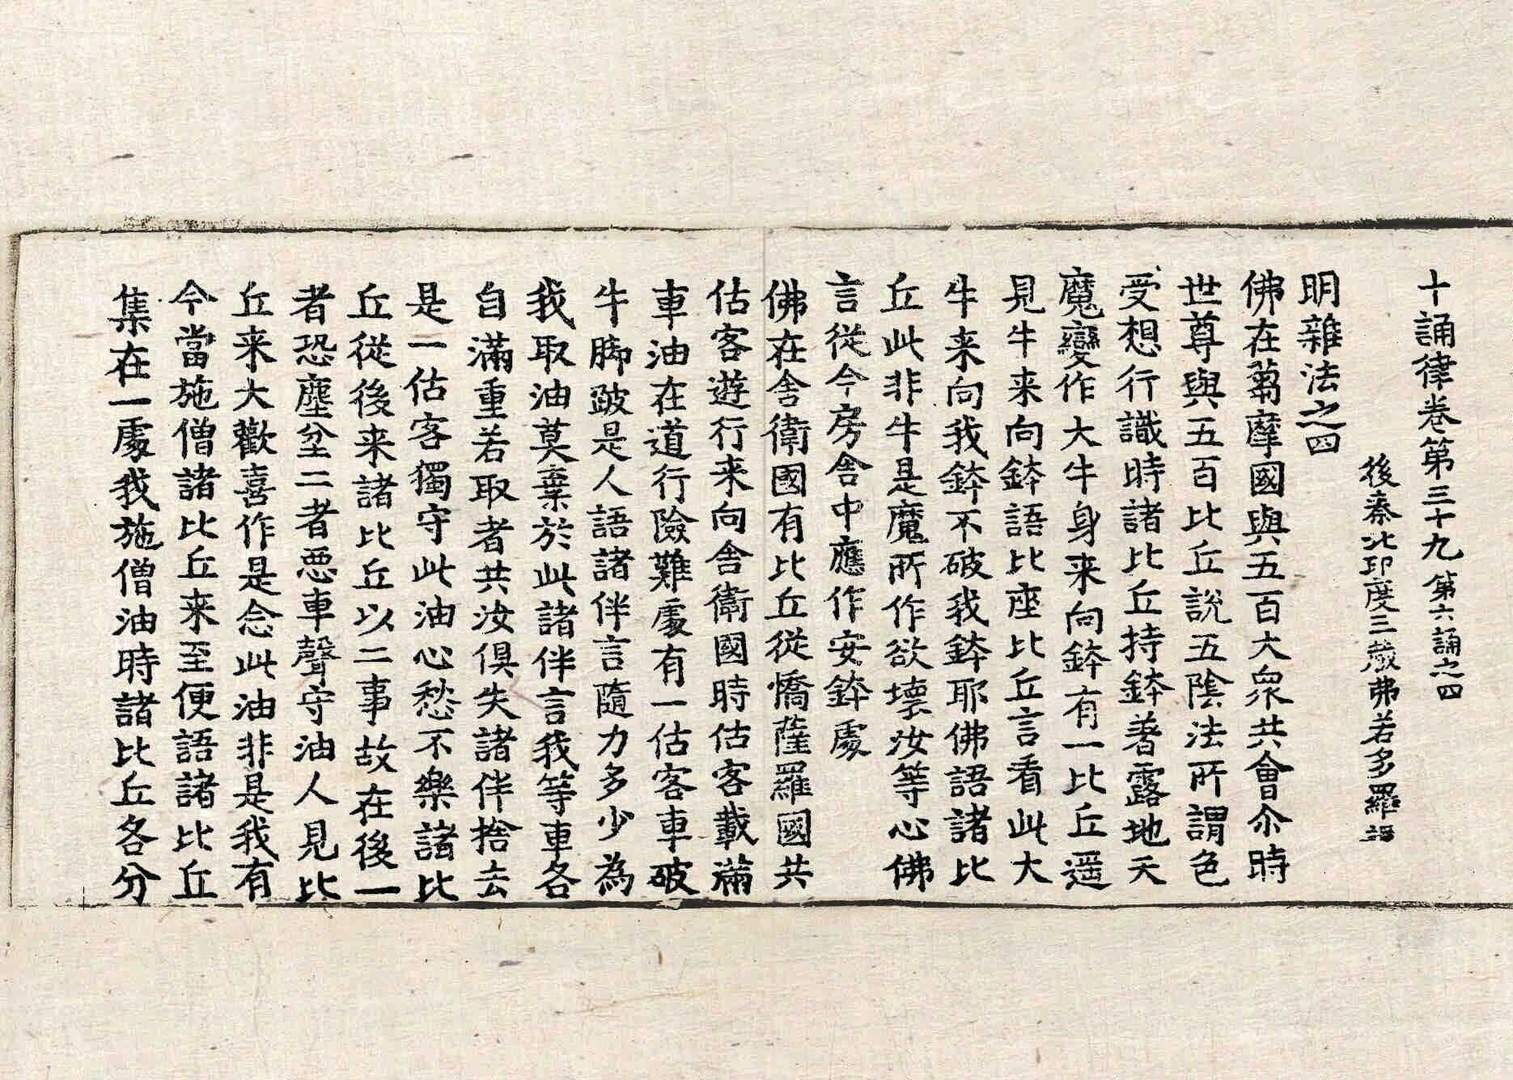 十誦律卷第三十九 第六誦之四
後秦北印度三藏弗若多羅譯
明雜法之四
佛在蒭摩國與五百大衆共會尒時
世尊與五百比丘說五陰法所謂色
受想行識時諸比丘持鉢著露地天
魔變作大牛身来向鉢有一比丘遥
見牛来向鉢語比座比丘言看此大
牛来向我鉢不破我鉢耶佛語諸比
丘此非牛是魔所作欲壞汝等心佛
言從今房舍中應作安鉢處
佛在舍衛國有比丘從憍薩羅國共
估客遊行来向舍衛國時估客載滿
車油在道行險難處有一估客車破
牛脚跛是人語諸伴言隨力多少為
我取油莫棄於此諸伴言我等車各
自滿重若取者共汝俱失諸伴捨去
是一估客獨守此油心愁不樂諸比
丘從後来諸比丘以二事故在後一
者恐塵坌二者惡車聲守油人見比
丘来大歡喜作是念此油非是我有
今當施僧諸比丘来至便語諸比丘
集在一處我施僧油時諸比丘各分